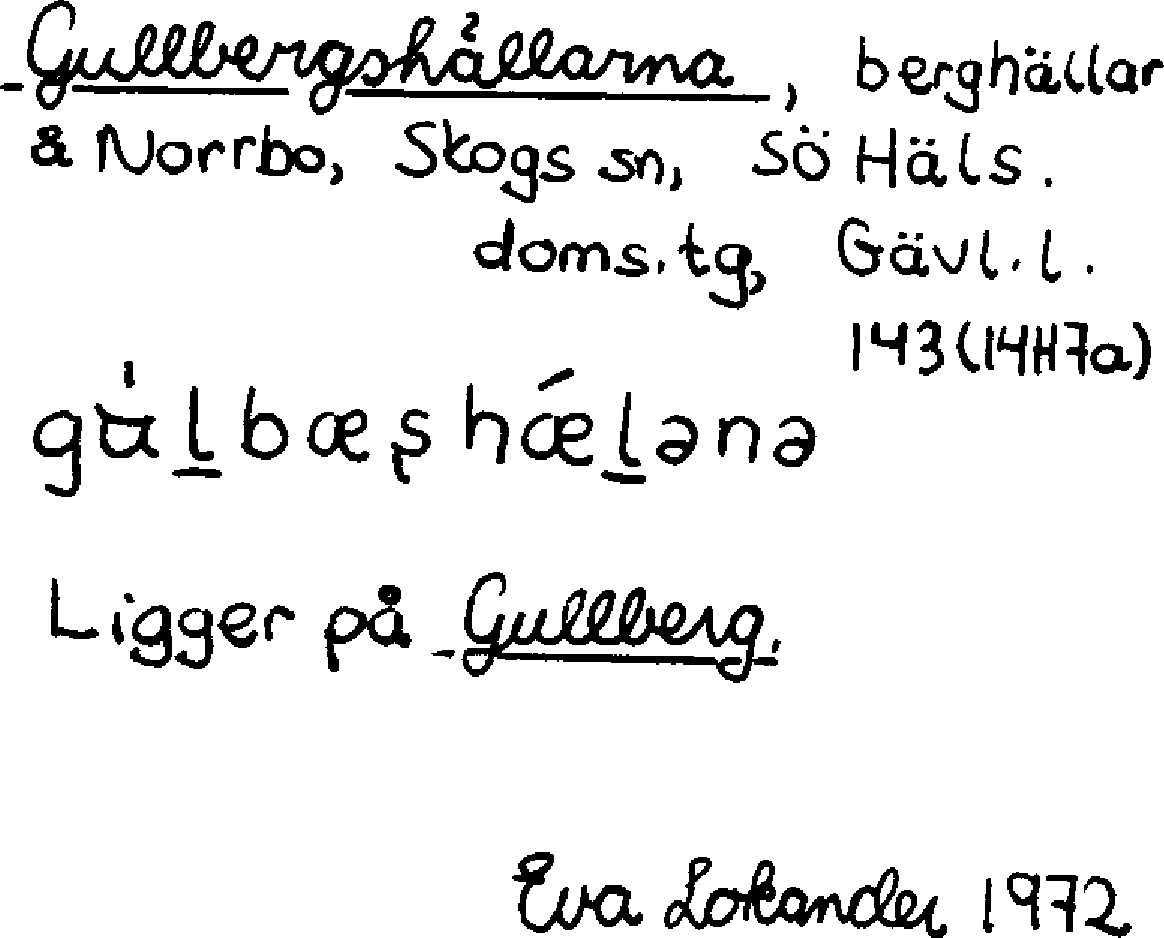 Gullbergshällarna, berghällar
å Norrbo, Skogs sn, Sö Häls.
doms.tg, Gävl.l.
143 (14H7a)
Ligger på Gullberg.
Eva Lokander 1972